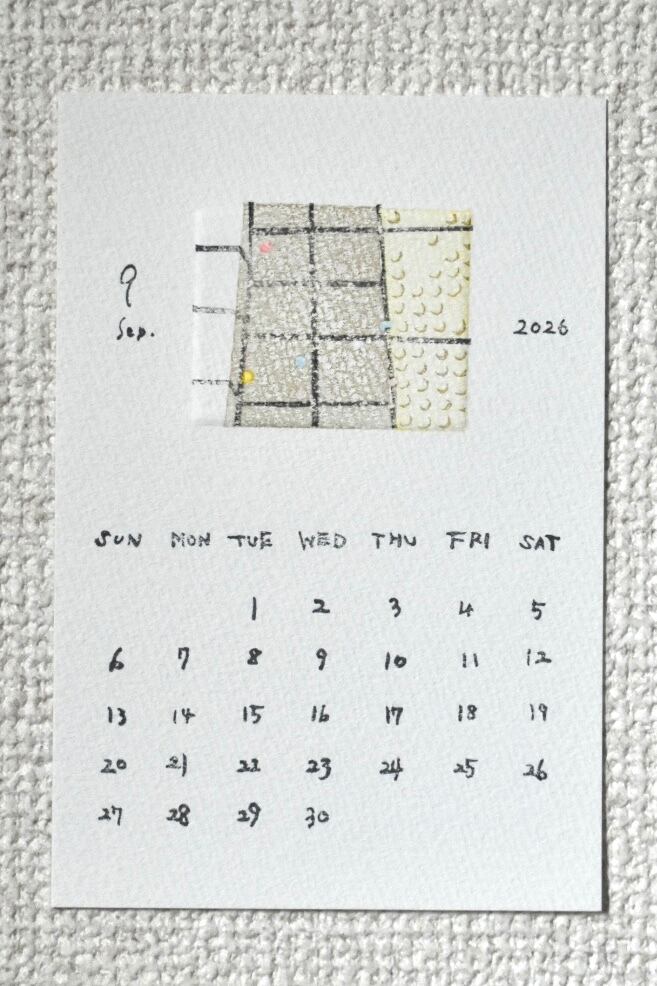 9
Sep.
2026
SUN MON TUE WED THU FRI SAT
1 2 3 4 5
6 7 8 9 10 11 12
13 14 15 16 17 18 19
20 21 22 23 24 25 26
27 28 29 30